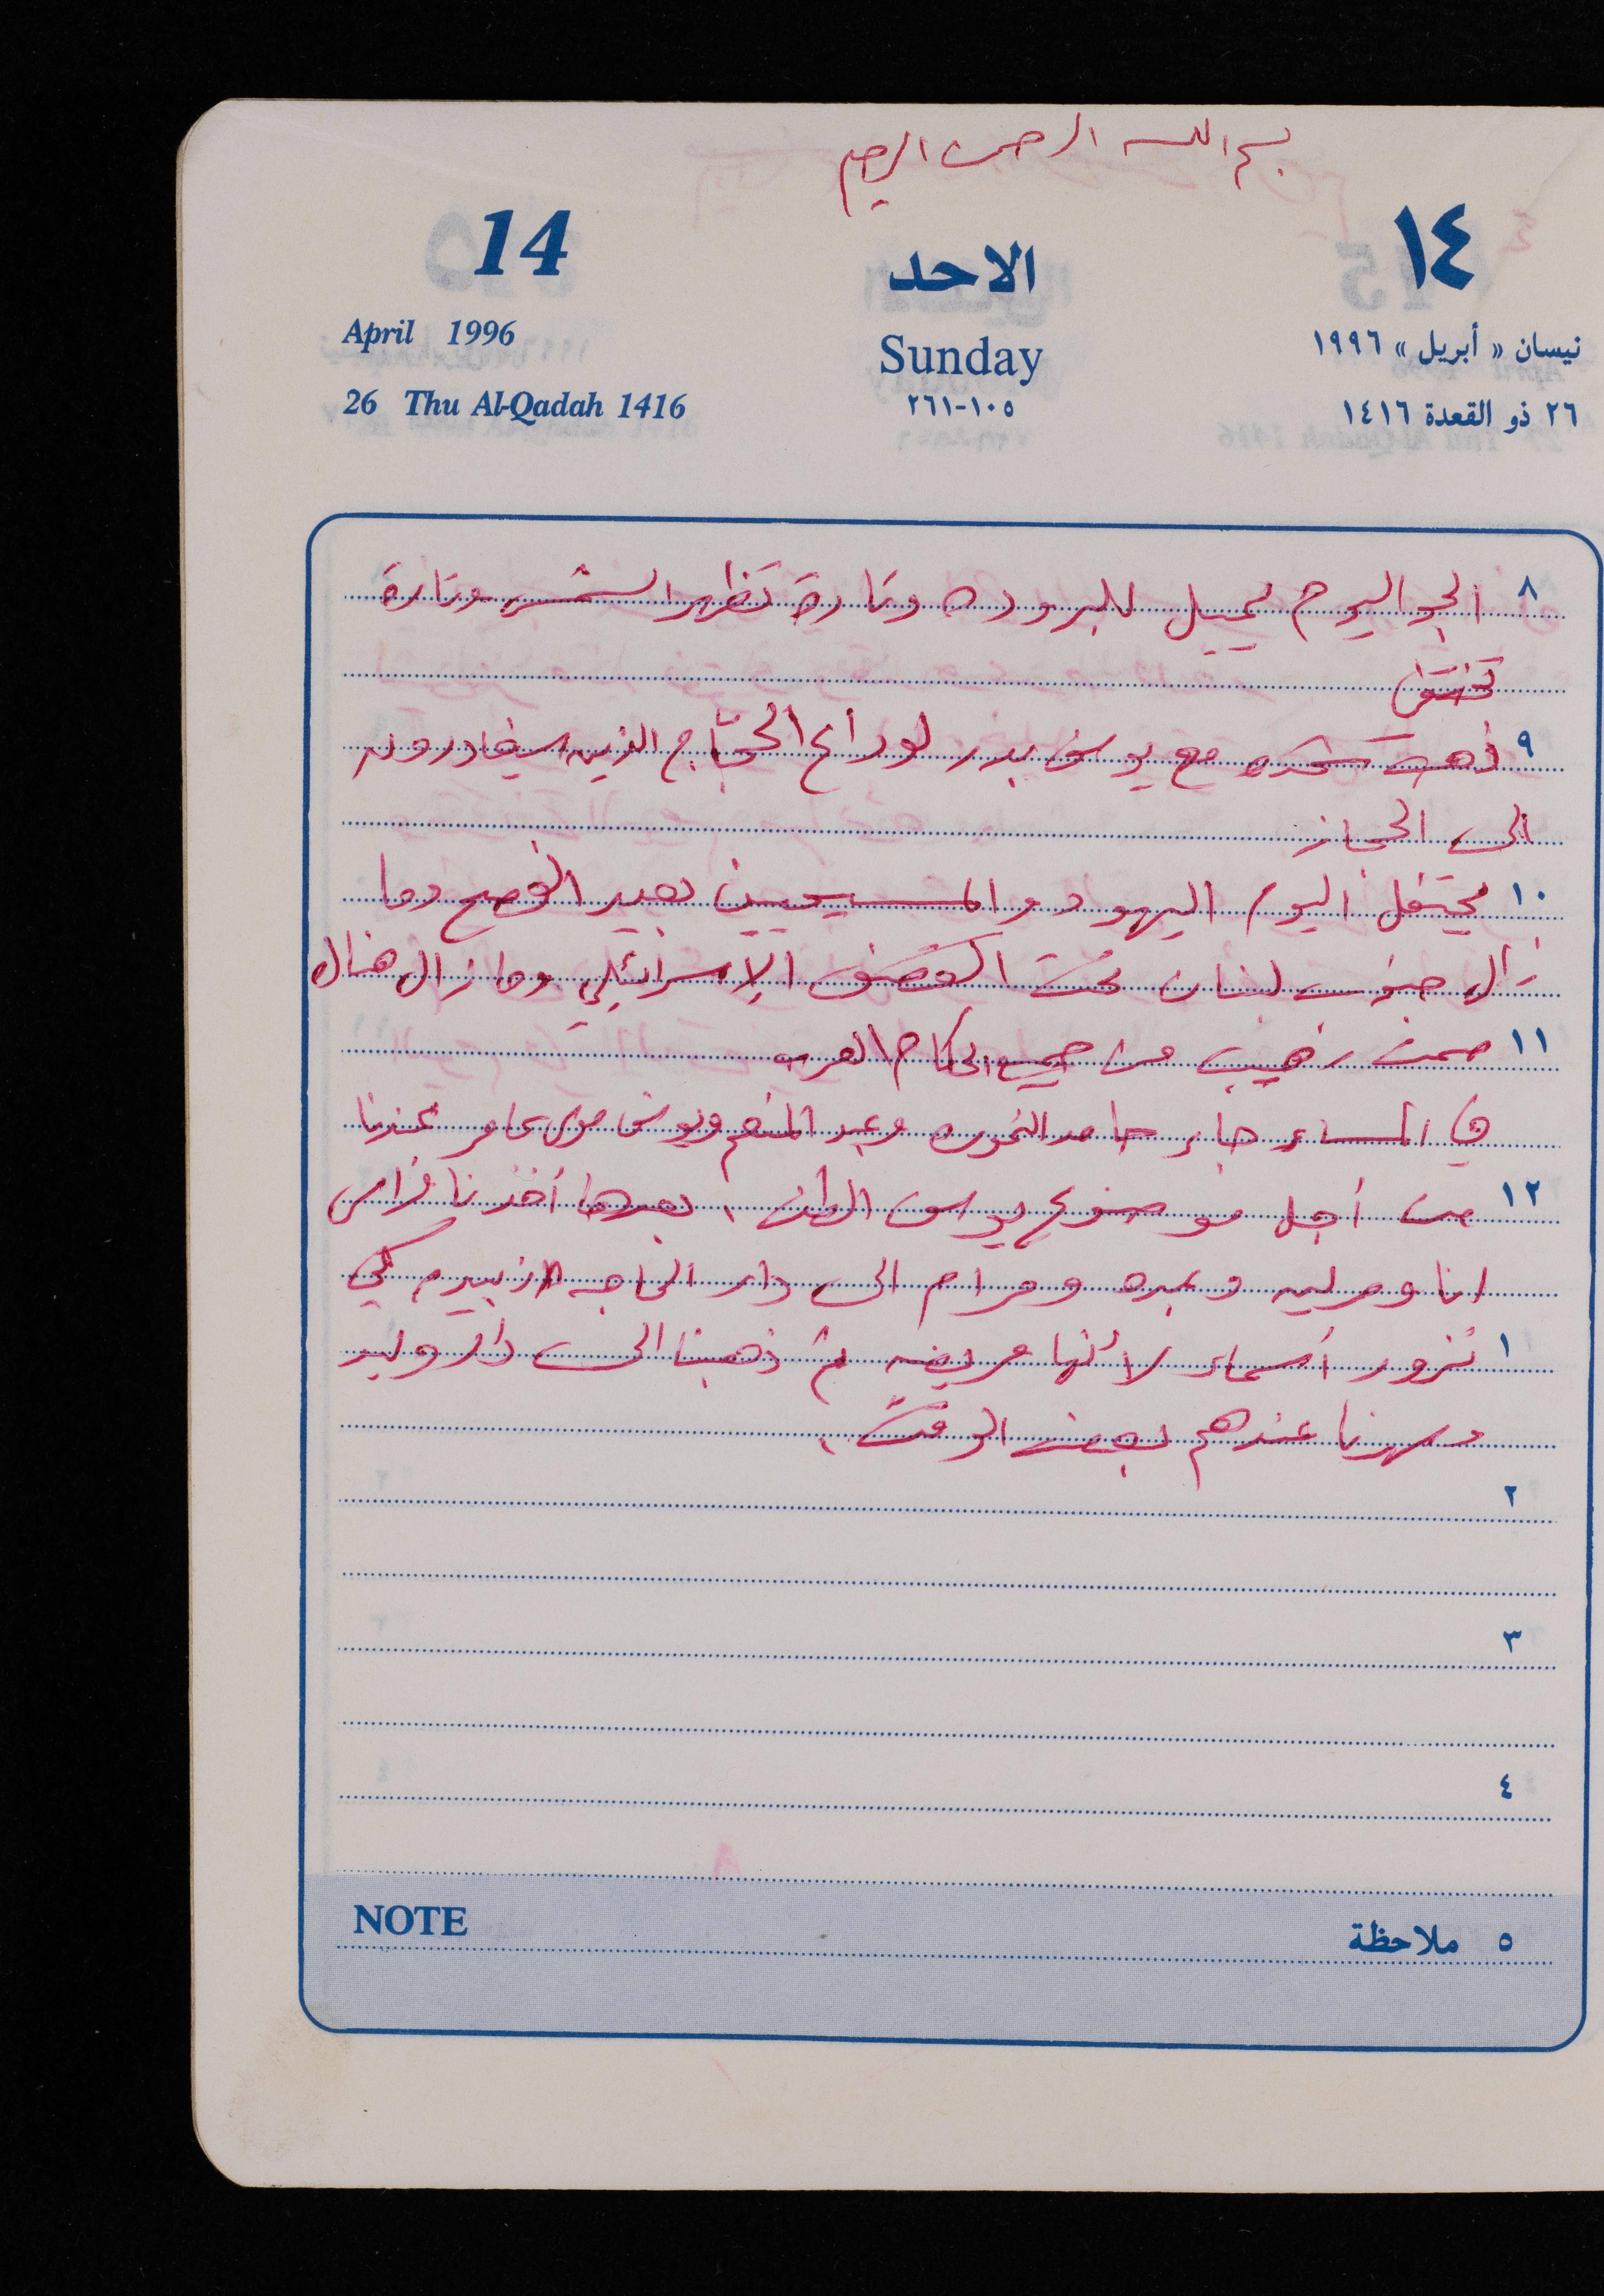 بسم الله الرحمن الرحيم
14 الاحد ١٤
April 1996 Sunday نيسان « أبريل » ١٩٩٦
26 Thu Al-Qadah 1416 ١٠٥-٢٦١ ٢٦ ذو القعدة ١٤١٦
٨ الجو اليوم يميل للبروده وتارة تظهر الشمس وتارة
تختفي
٩ ذهبت مع يوسف بدر لوداع الحجّاج الذين سيغادرون
الى الحجاز
١٠ يحتفل اليوم اليهود والمسيحيين بعيد الفصح وما
زال جنوب لبنان تحت القصف الإسرائيلي وما زال هناك
١١ صمت رهيب من جميع الحكام العرب
في المساء جاء حامد وعبد المنعم ويوسف موسى عامر عندنا
١٢ من أجل موضوع يوسف ، بعدها أخذنا فراس
انا وعبده ومرام الى دار الحاجه كي
١ نزور أسماء لأنها مريضه ثم ذهبنا الى دار وليد
وسهرنا عندهم بعض الوقت .
٢
٣
٤
NOTE ٥ ملاحظة